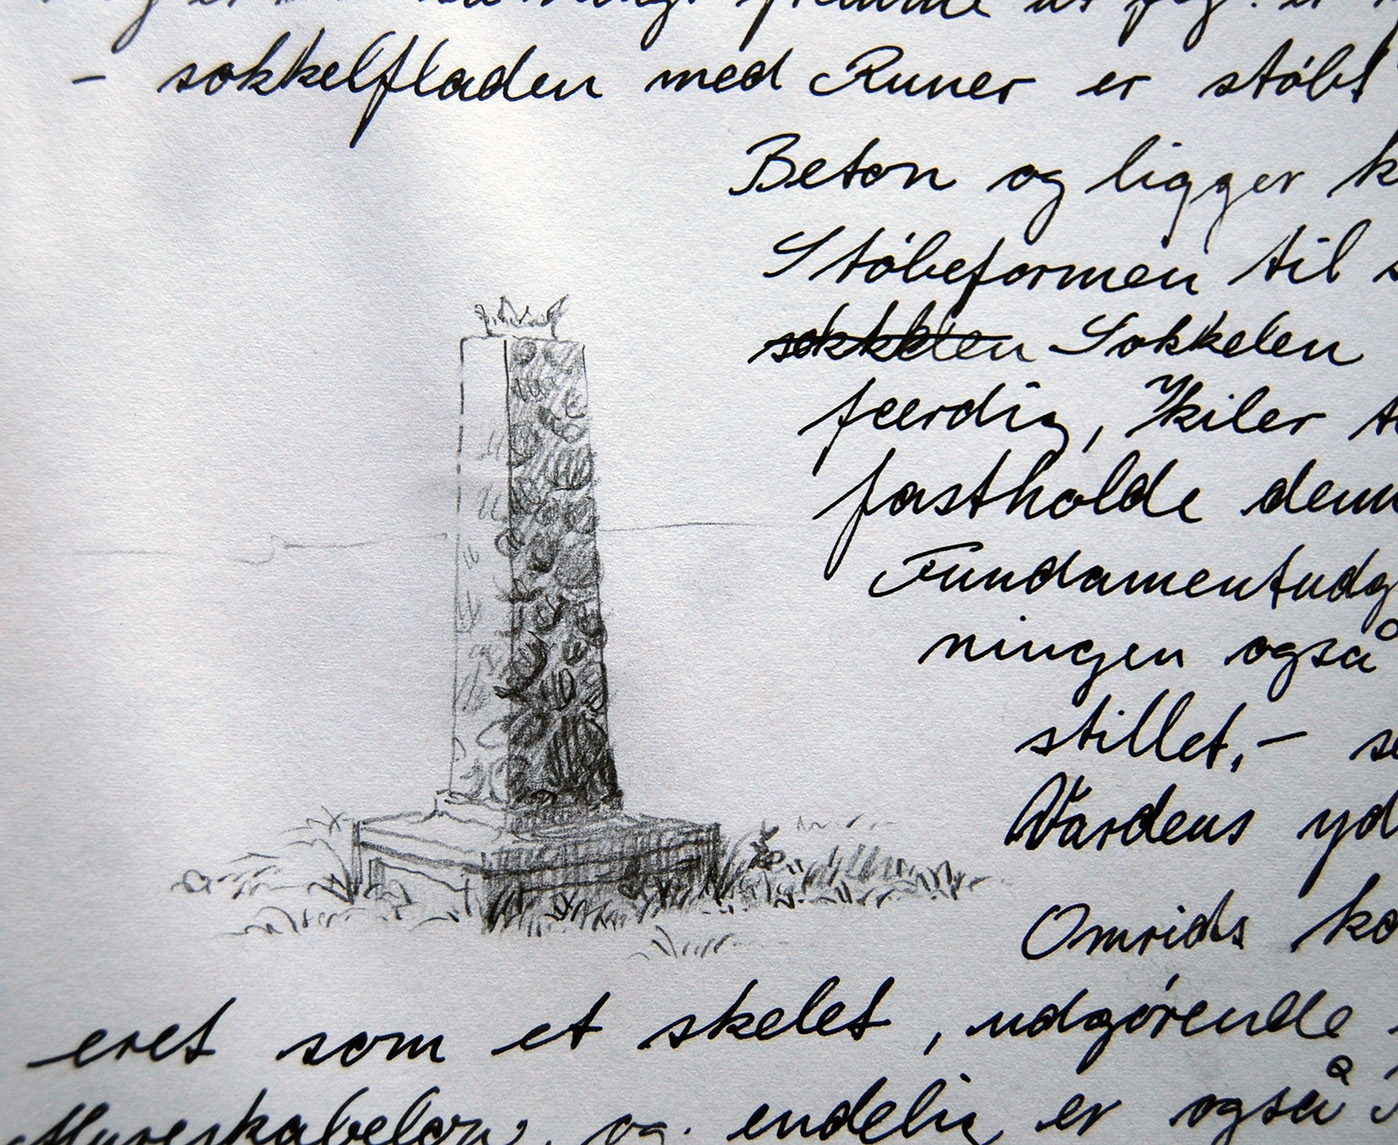 fremme
– sokkelfladen med Runer er støbt
Beton og ligger k
Støbeformen til s
sokkelen Sokkelen
færdig, kiler t
fastholde denn
Fundamentudg
ningen også
stillet, – s
Vardens yd
Omrids ko
eret som et skelet, udgørende
Mureskabelon, og endelig er også